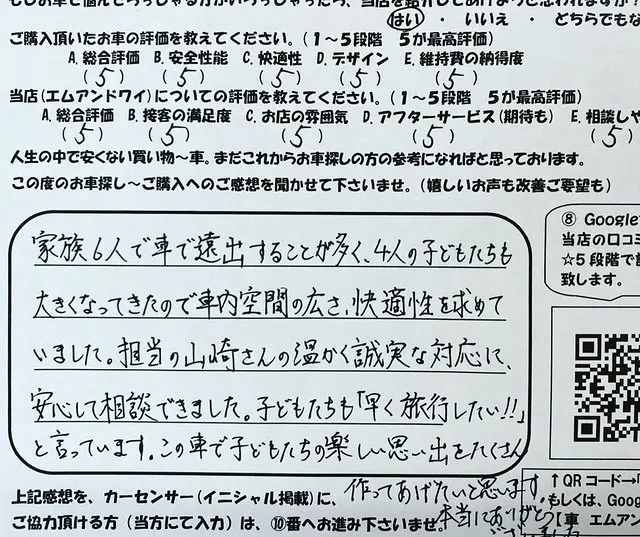 もしお車を悩んでらっしゃる方がいらっしゃったら、当店を紹介してあげようと思われますか？
はい ・ いいえ ・ どちらでもな
ご購入頂いたお車の評価を教えてください。(１～５段階 ５が最高評価)
A. 総合評価 B. 安全性能 C. 快適性 D. デザイン E. 維持費の納得度
(5) (5) (5) (5) (5)
当店(エムアンドワイ)についての評価を教えてください。(１～５段階 ５が最高評価)
A. 総合評価 B. 接客の満足度 C. お店の雰囲気 D. アフターサービス(期待も) E. 相談しや
(5) (5) (5) (5) (5)
人生の中で安くない買い物～車。まだこれからお車探しの方の参考になればと思っております。
この度のお車探し～ご購入へのご感想を聞かせて下さいませ。(嬉しいお声も改善ご要望も)
家族6人で車で遠出することが多く、4人の子どもたちも
大きくなってきたので車内空間の広さ、快適性を求めて
いました。担当の山崎さんの温かく誠実な対応に、
安心して相談できました。子どもたちも「早く旅行したい!!」
と言っています。この車で子どもたちの楽しい思い出をたくさん
作ってあげたいと思います。
本当にありがとう
ございました
⑧ Google
当店の口コミ
☆５段階で評
致します。
上記感想を、カーセンサー(イニシャル掲載)に、
ご協力頂ける方（当方にて入力）は、⑩番へお進み下さいませ。
↑QRコード→「
もしくは、Goog
【車 エムアン